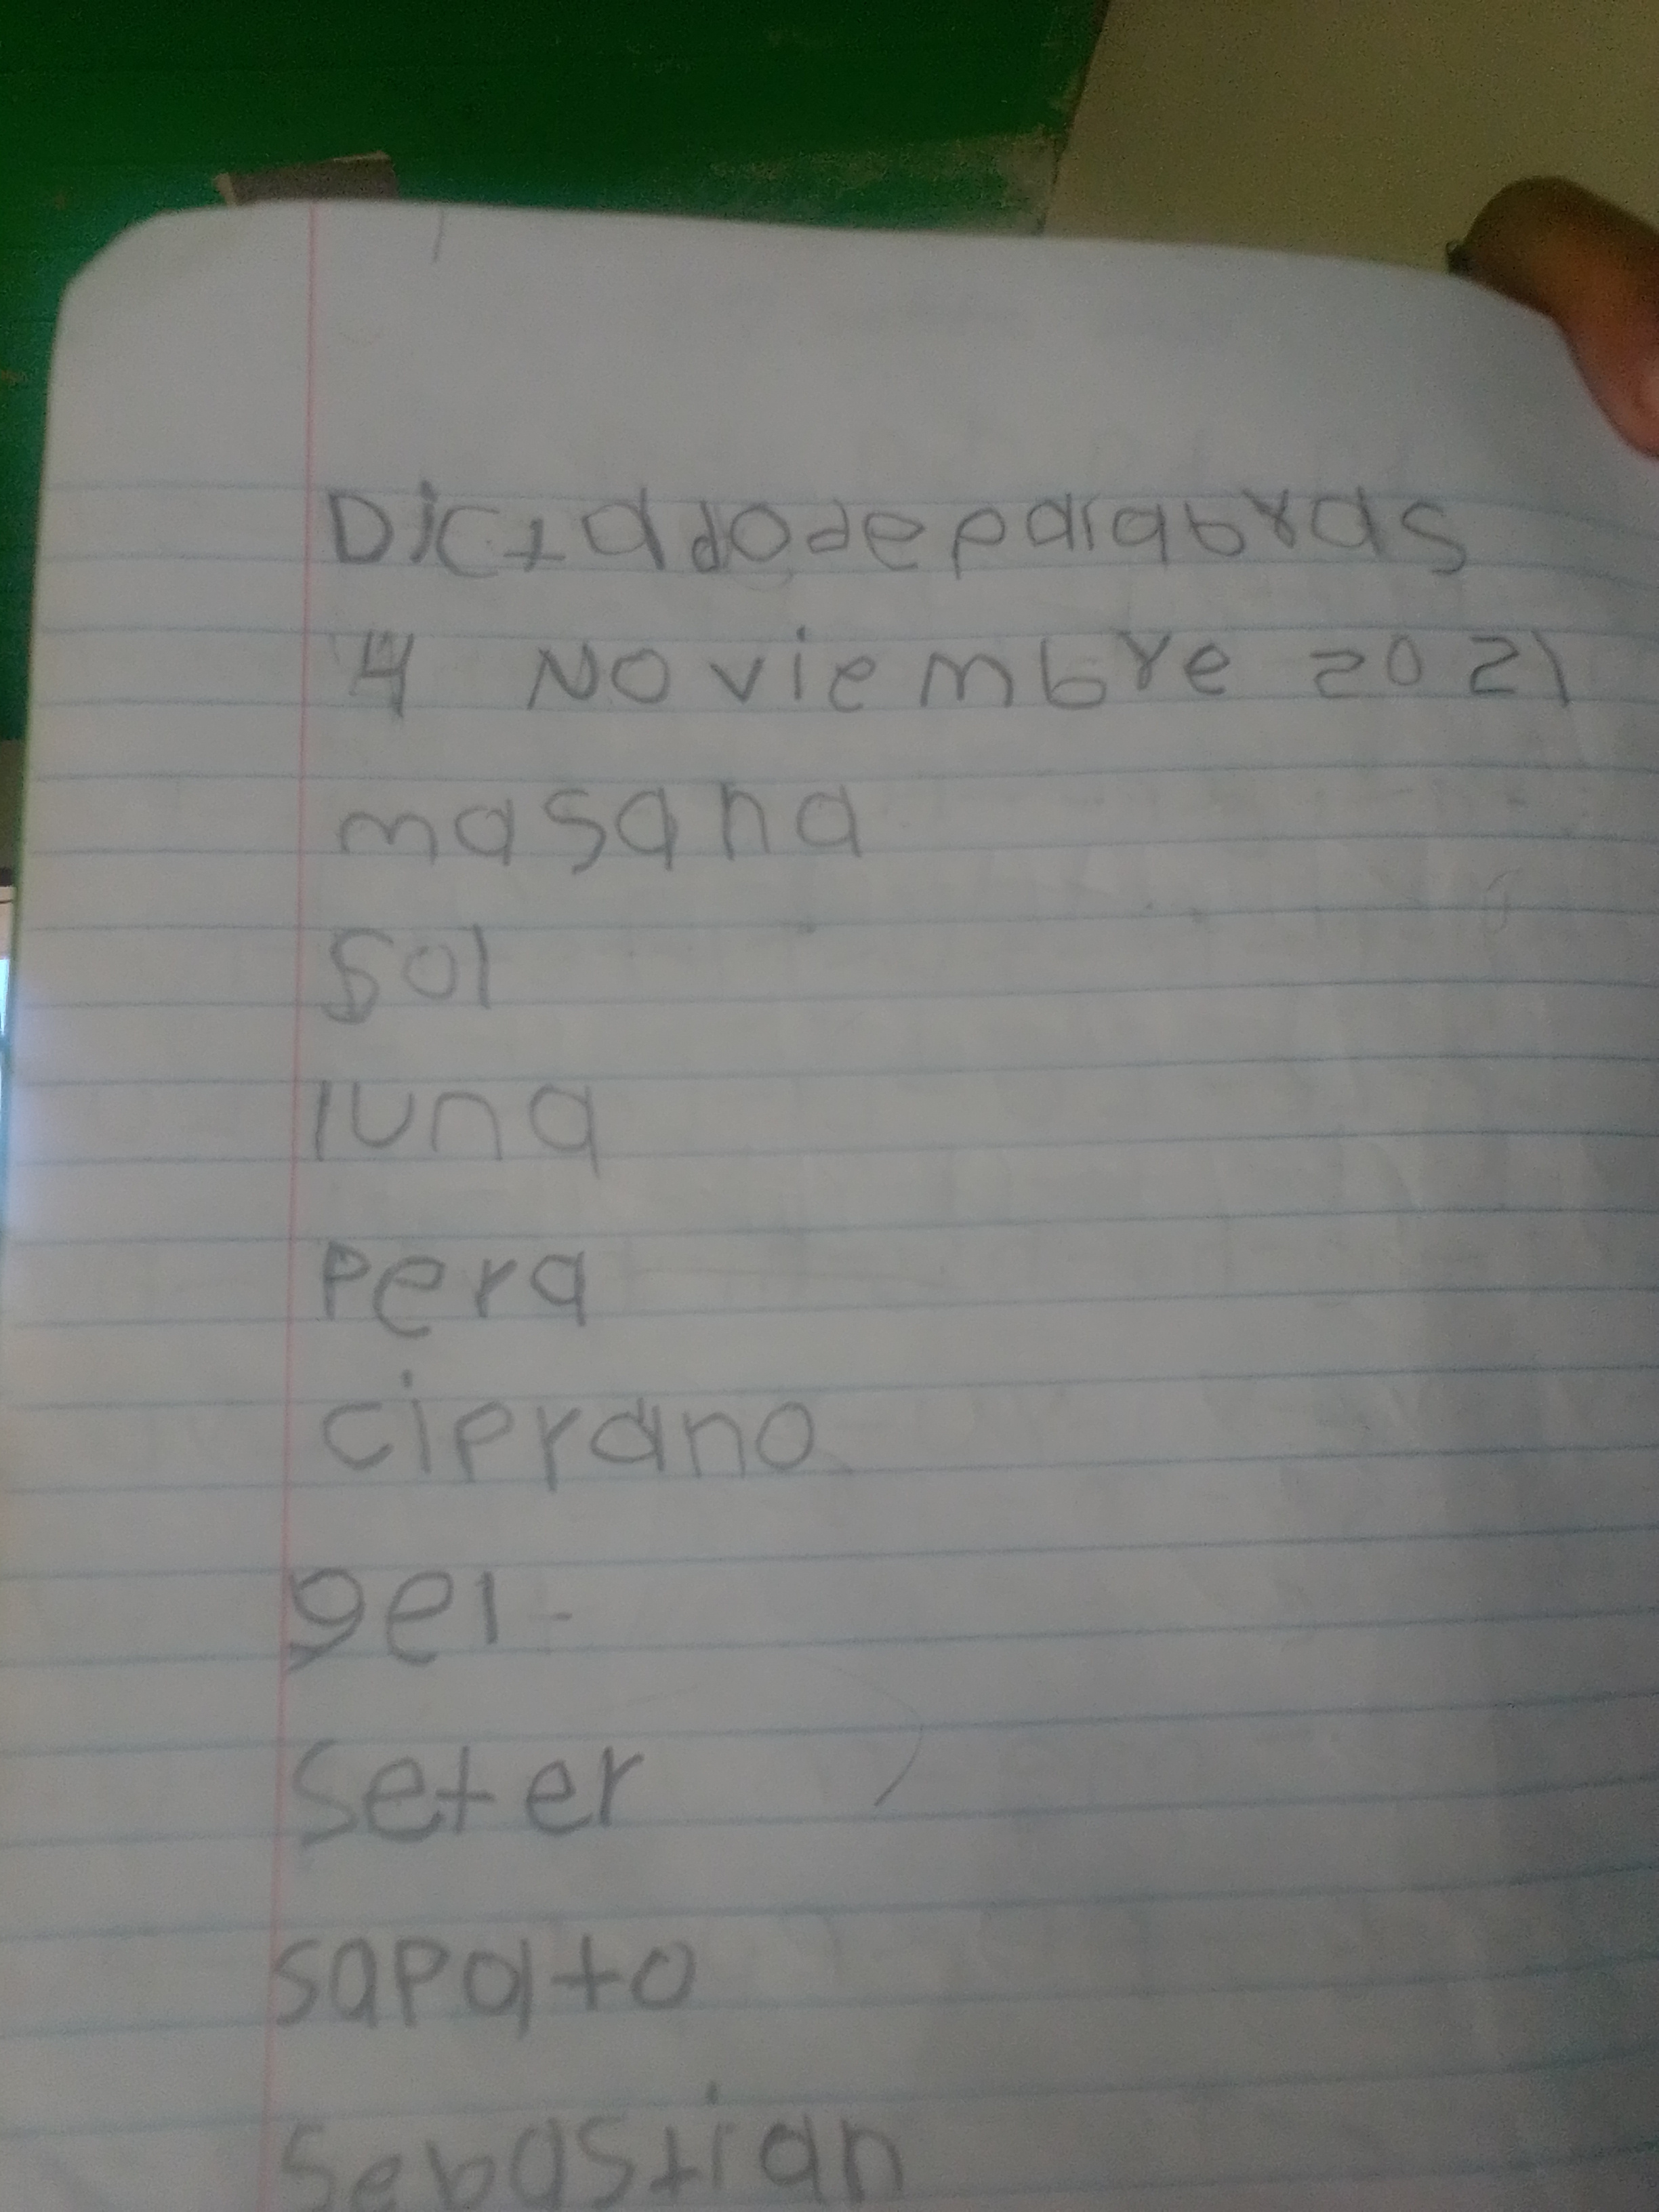 Dictadodepalabras
4 Noviembre 2021
masana
sol
luna
Pera
ciprano
gel
Seter
sapato
Sebastian